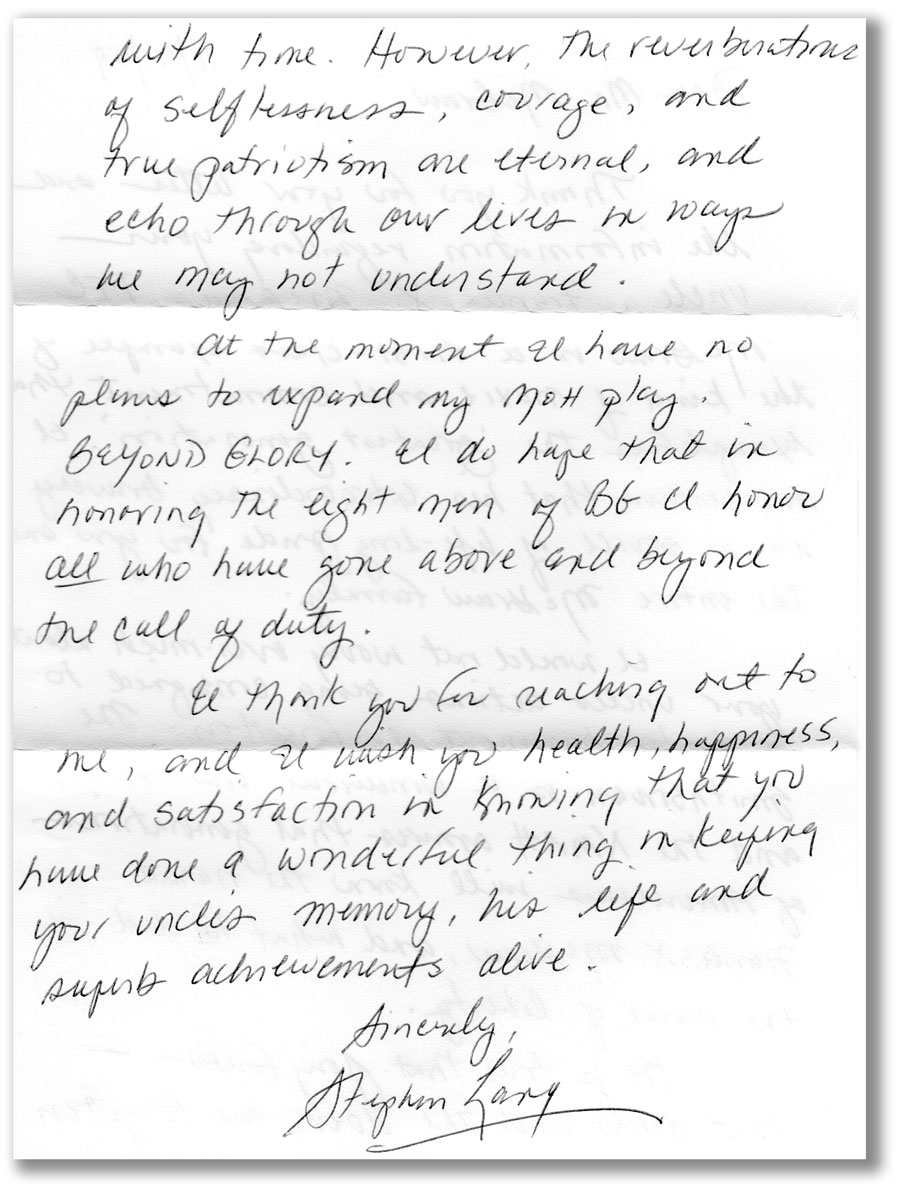 with time. However, the reverberations
of selflessness, courage, and
true patriotism are eternal, and
echo through our lives in ways
we may not understand.
At the moment I have no
plans to expand my MOH play.
BEYOND GLORY. I do hope that in
honoring the eight men of BG I honor
all who have gone above and beyond
the call of duty.
I thank you for reaching out to
me, and I wish you health, happiness,
and satisfaction in knowing that you
have done a wonderful thing in keeping
your uncle's memory, his life and
superb achievements alive.
Sincerely,
Stephen Lang